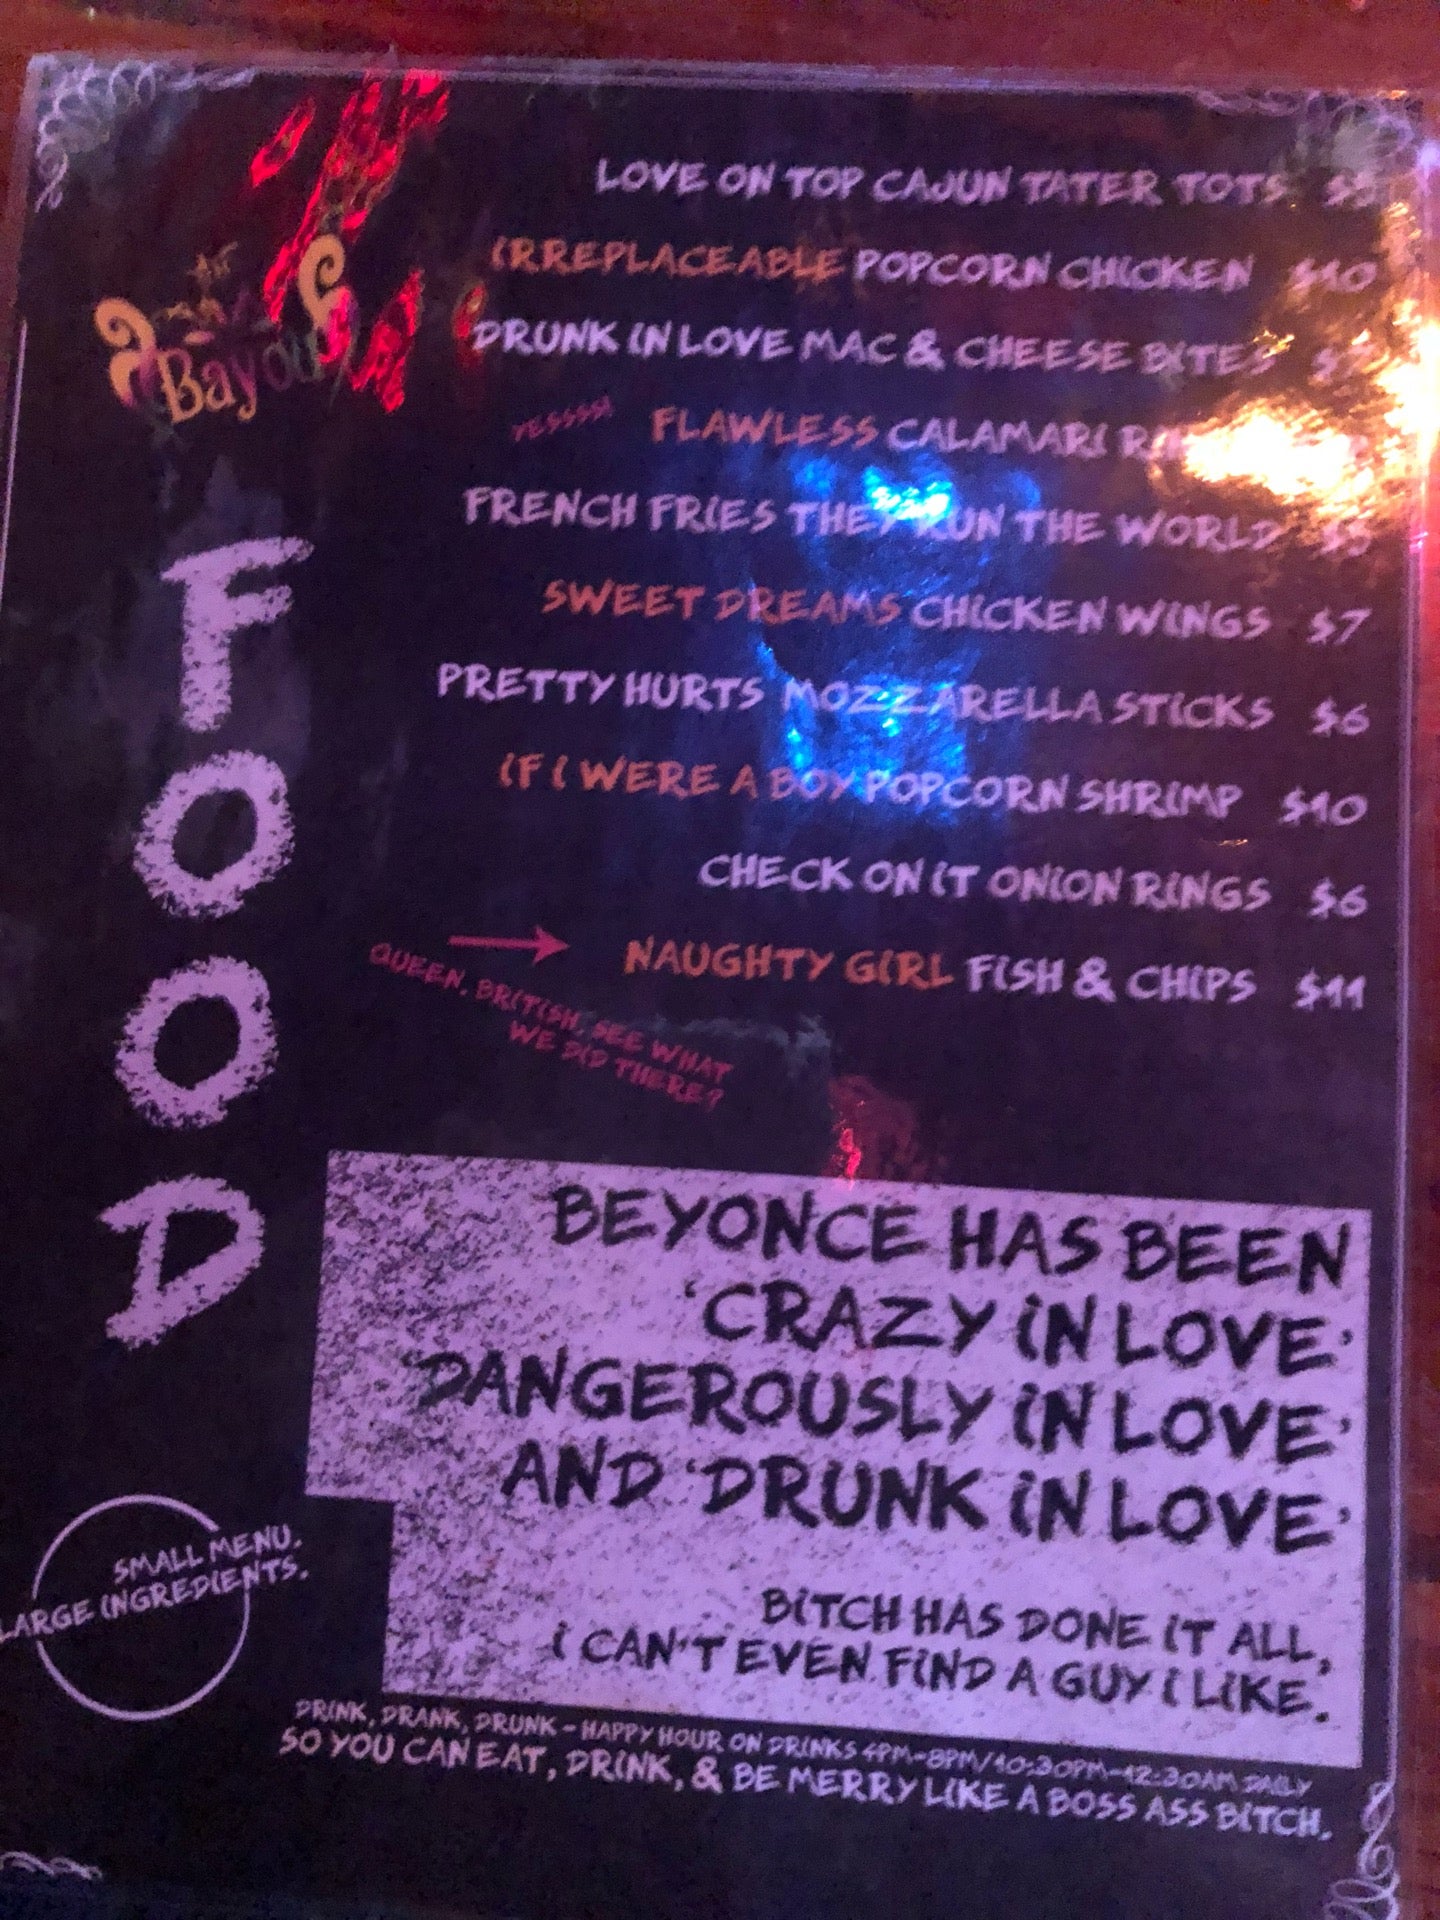 Bayou
FOOD
LOVE ON TOP CAJUN TATER TOTS
IRREPLACEABLE POPCORN CHICKEN $10
DRUNK IN LOVE MAC & CHEESE BITES
YESSSS!
FLAWLESS CALAMARI
FRENCH FRIES THEY RUN THE WORLD $5
SWEET DREAMS CHICKEN WINGS $7
PRETTY HURTS MOZZARELLA STICKS $6
IF I WERE A BOY POPCORN SHRIMP $10
CHECK ON IT ONION RINGS $6
NAUGHTY GIRL FISH & CHIPS $11
QUEEN, BRITISH, SEE WHAT
WE DID THERE?
BEYONCE HAS BEEN
'CRAZY IN LOVE'
'DANGEROUSLY IN LOVE'
AND 'DRUNK IN LOVE'
BITCH HAS DONE IT ALL,
I CAN'T EVEN FIND A GUY I LIKE.
SMALL MENU.
LARGE INGREDIENTS.
DRINK, DRANK, DRUNK - HAPPY HOUR ON DRINKS 4PM-8PM/10:30PM-12:30AM DAILY
SO YOU CAN EAT, DRINK, & BE MERRY LIKE A BOSS ASS BITCH.